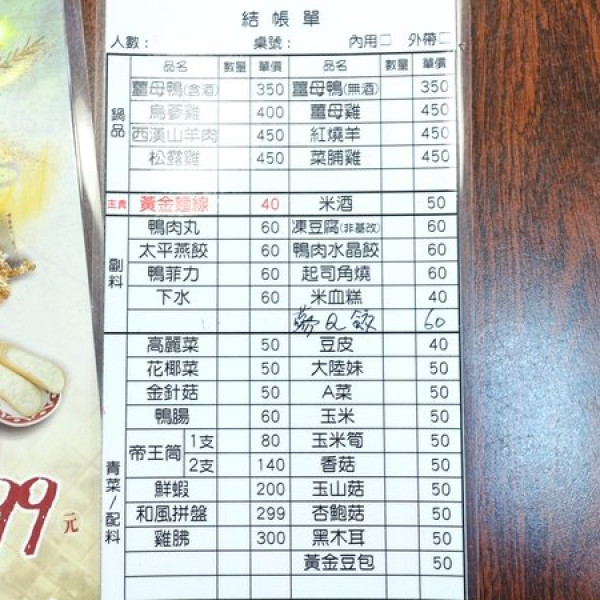 結帳單
人數： 桌號： 內用□ 外帶□
品名 數量 單價 品名 數量 單價
鍋品
薑母鴨(含酒) 350 薑母鴨(無酒) 350
烏蔘雞 400 薑母雞 450
西漢山羊肉 450 紅燒羊 450
松露雞 450 菜脯雞 450
主食 黃金麵線 40 米酒 50
副料
鴨肉丸 60 凍豆腐(非基改) 60
太平燕餃 60 鴨肉水晶餃 60
鴨菲力 60 起司角燒 60
下水 60 米血糕 40
Q餃 60
青菜/配料
高麗菜 50 豆皮 40
花椰菜 50 大陸妹 50
金針菇 50 A菜 50
鴨腸 60 玉米 50
帝王筒 1支 80 玉米筍 50
2支 140 香菇 50
鮮蝦 200 玉山菇 50
和風拼盤 299 杏鮑菇 50
雞胇 300 黑木耳 50
黃金豆包 50
99元